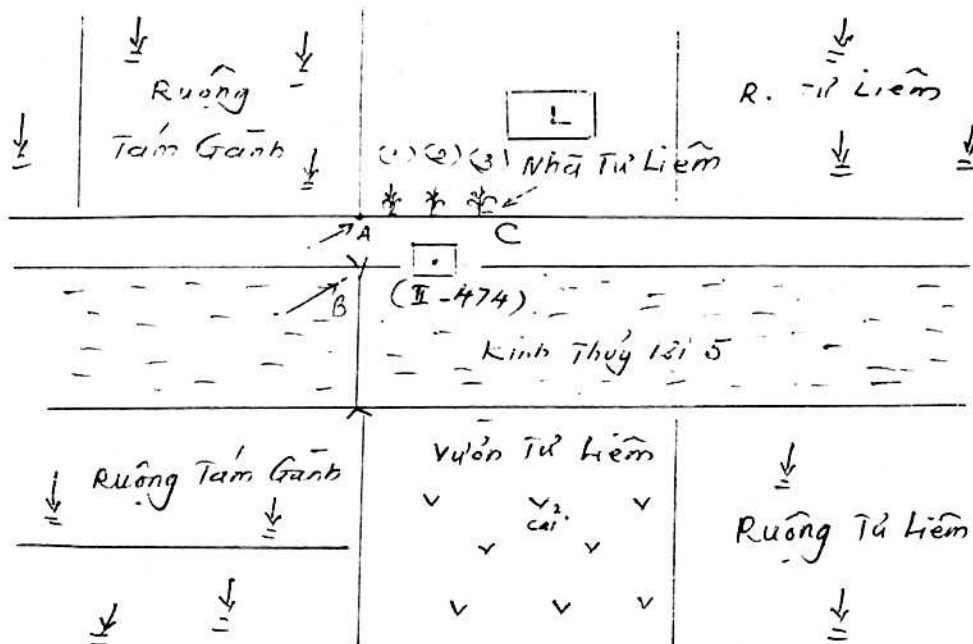 Ruộng
Tám Gành
R. Tư Liêm
L
(1) (2) (3)
Nhà Tư Liêm
A
C
B
(II-474)
Kinh Thủy lợi 5
Ruộng Tám Gành
Vườn Tư Liêm
Ruộng Tư Liêm